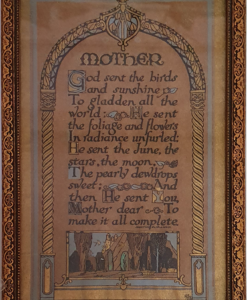 MOTHER
God sent the birds
and sunshine To
To gladden all the
world: He sent
the foliage and flowers
In radiance unfurled:
He sent the June, the
stars, the moon,
The pearly dewdrops
sweet: And
then He sent You,
Mother dear To
make it all complete.